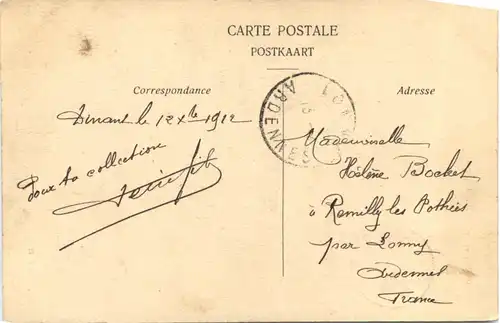 CARTE POSTALE
POSTKAART
Correspondance
Adresse
Dinant le 12 Xbre 1912
Pour ta collection
Mademoiselle
Hélène Bocket
à Remilly les Pothées
par Lonny
Ardennes
France
ARDENNES